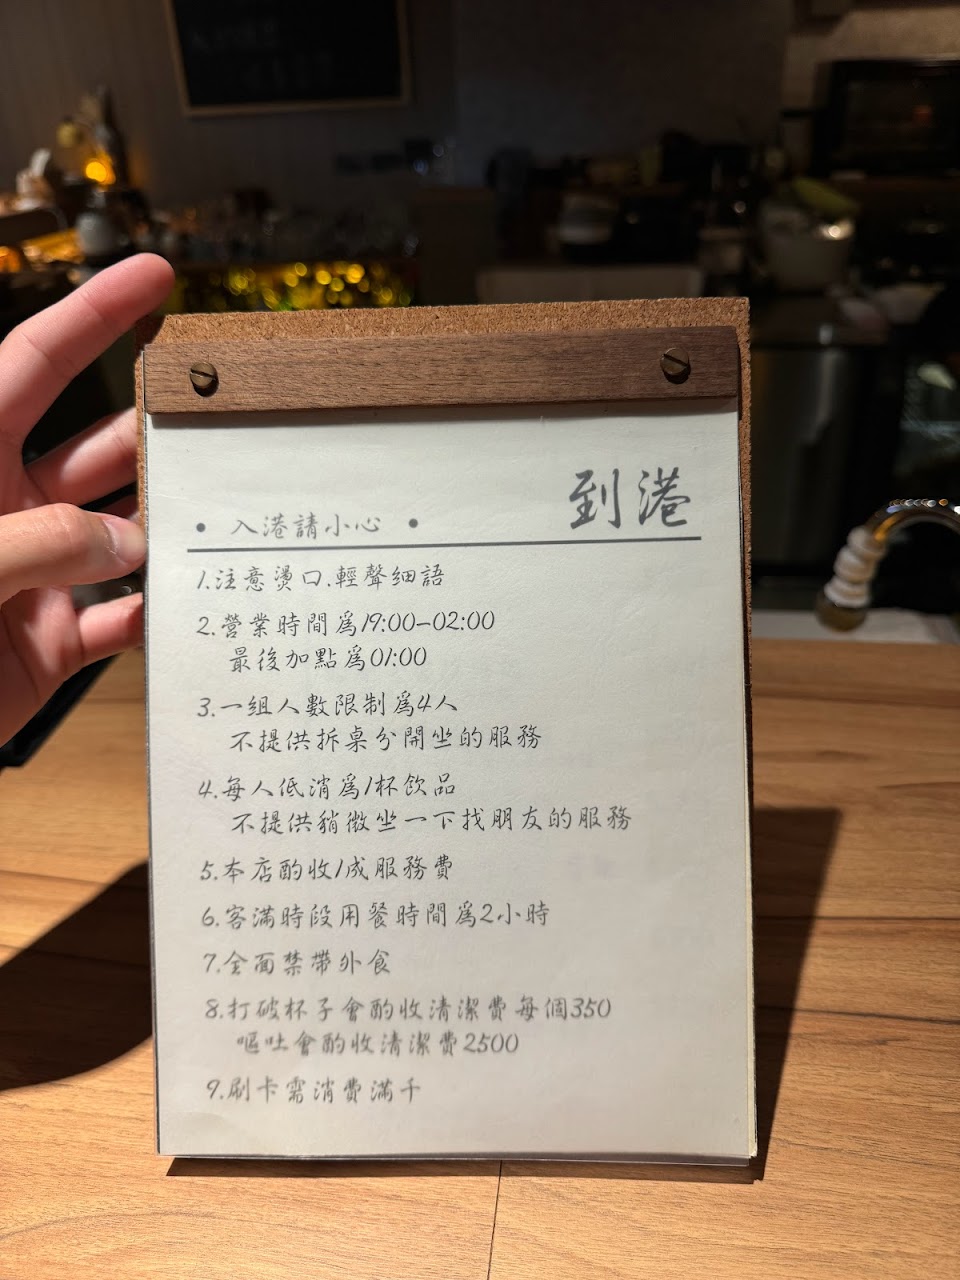 到港
• 入港請小心 •
1.注意燙口.輕聲細語
2.營業時間為19:00-02:00
最後加點為01:00
3.一組人數限制為4人
不提供拆桌分開坐的服務
4.每人低消為1杯飲品
不提供稍微坐一下找朋友的服務
5.本店酌收1成服務費
6.客滿時段用餐時間為2小時
7.全面禁帶外食
8.打破杯子會酌收清潔費每個350
嘔吐會酌收清潔費2500
9.刷卡需消費滿千